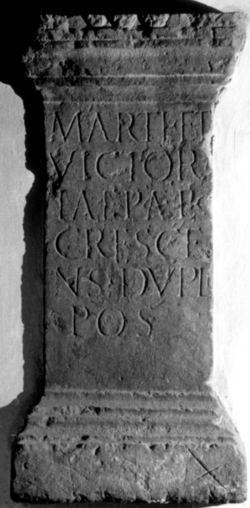 MARTI ET
VICTOR
IAE
CRESCE
NS DVPL
POS